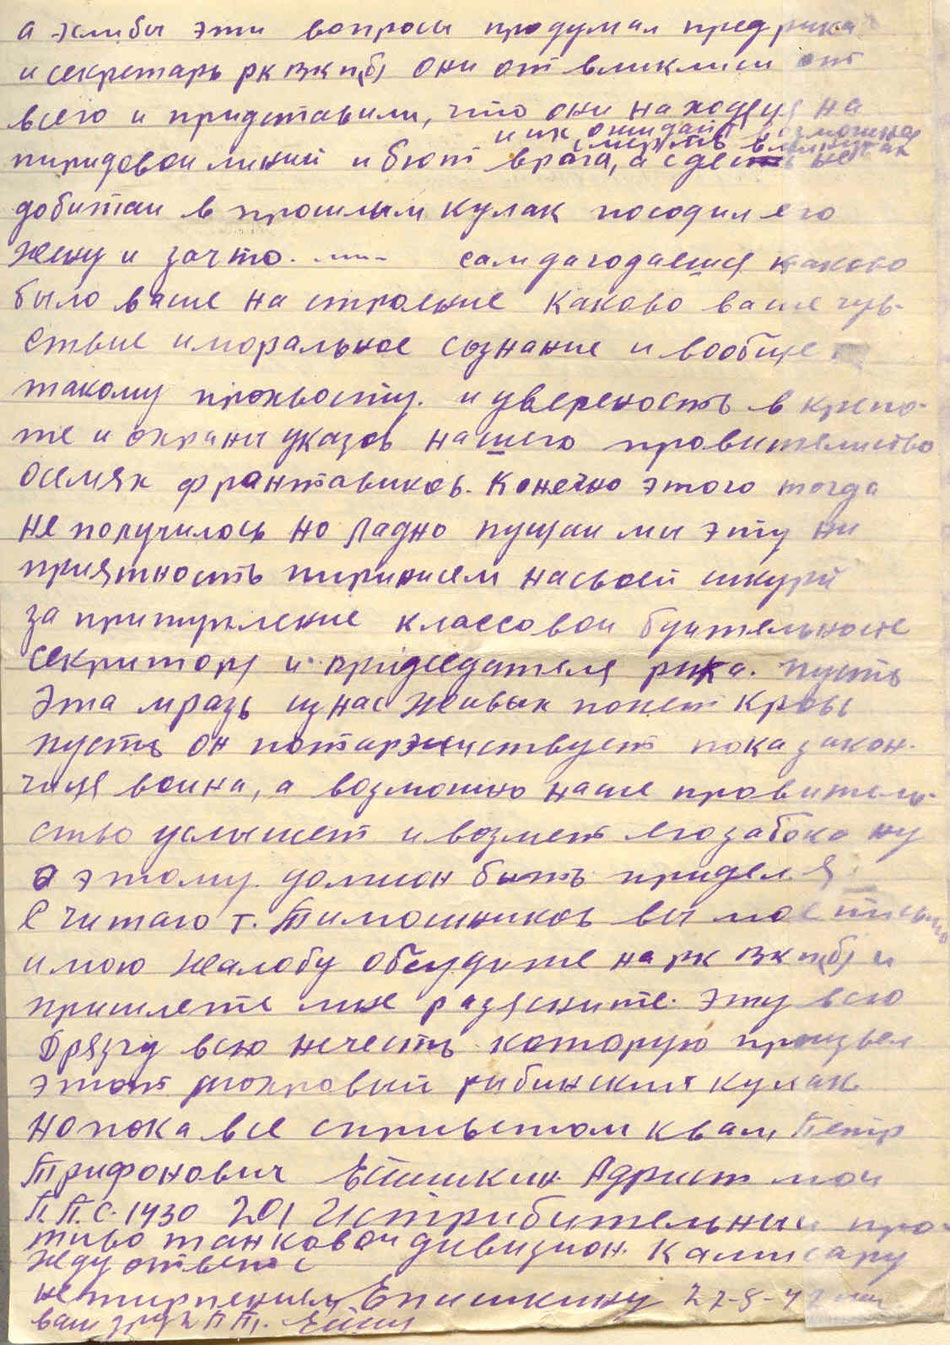 а эслибы эти вопросы продумал предрика
и секретарь рк вкп(б) они отвликлиси от
всего и придставили, что они находеця на
и их ожидаит возможна
смерть
пиридовои линий и бют врага, а сдесь
добитаи в прошлым кулак посодил его
жену и зачто. ---- сам дагодаешся каково
было ваше на строение каково ваше чув-
ствие иморальное сознание и вообще
такому прохвосту. и увереность в крепо-
те и охраны указов нашего провительство
осемях франтавиков. Конечно этого тогда
не получилось но ладно пущаи мы эту ни
приятность пиринисем насвоей шкури
за притупление классовои бдительносте
секриторя и придседателя рика. пусть
эта мразь изнас живых попет кровь
пусть он потаржествует пока закон-
чиця воина, а возможно наше провитель-
ство услышет ивозмет его забока ну
а этому должон быть придел.
Считаю т. Тимошников вы мое письмо
имою жалобу обсудите на рк вкп(б) и
пришлете мне разясните. эту всю
дрязгу всю нечесть которую произвел
этот махровый рибинский кулак
нопока все сприветом квам Пётр
Трифонович Епишкин Адрист мои
П.П.С. 1930 201 Истрибительный про
тиво танковои дивизион. Камисару
жду ответ с
нетирпением Епишкину 27-5-42
ваш друг П.Т. Епиш